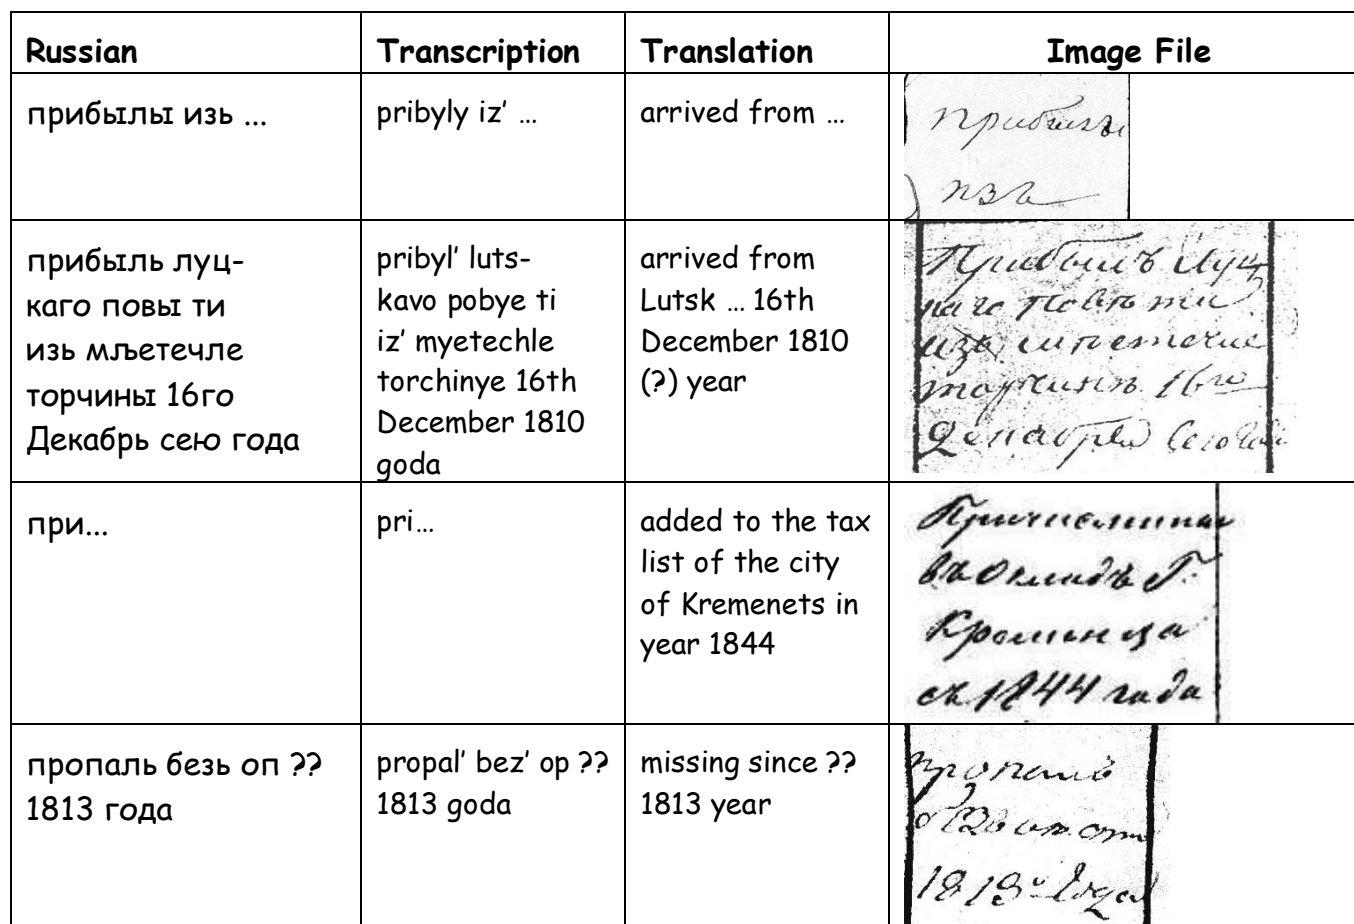 Russian Transcription Translation Image File
прибылы изь ...
pribyly iz’ …
arrived from …
прибылъ
изъ
прибыль луц-
каго повы ти
изь мљетечле
торчины 16го
Декабрь сею года
pribyl’ luts-
kavo pobye ti
iz’ myetechle
torchinye 16th
December 1810
goda
arrived from
Lutsk … 16th
December 1810
(?) year
Прибылъ Луц
каго повѣти
изъ мѣстечке
торчинъ 16го
декабря сего года
при...
pri…
added to the tax
list of the city
of Kremenets in
year 1844
Причисленный
въ окладъ Г.
Кременца
съ 1844 года
пропаль безь оп ??
1813 года
propal’ bez’ op ??
1813 goda
missing since ??
1813 year
пропалъ
1813 года